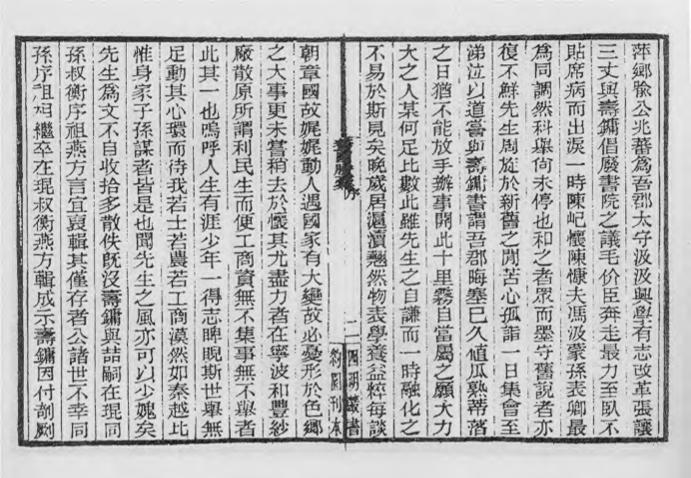 萍鄉喻公兆蕃為吾郡太守汲汲興學有志改革張讓
三丈與壽鏞倡廢書院之議毛价臣奔走最力至臥不
貼席病而出淚一時陳屺懷陳慷夫馮汲蒙孫表卿最
為同調然科舉尚未停也和之者眾而墨守舊說者亦
復不鮮先生周旋於新舊之閒苦心孤詣一日集會至
涕泣以道當與壽鏞書謂吾郡晦塞已久値瓜熟蒂落
之日猶不能放手辦事開此十里霧自當屬之願大力
大之人某何足比數此雖先生之自謙而一時融化之
不易於斯見矣晚歲居滬瀆翹然物表學養益粹每談
序
二
四明叢書
約園刊本
朝章國故娓娓動人遇國家有大變故必憂形於色鄉
之大事更未嘗稍去於懷其尤盡力者在寧波和豐紗
廠散原所謂利民生而便工商資無不集事無不舉者
此其一也嗚呼人生有涯少年一得志睥睨斯世舉無
足動其心環而待我若士若農若工商漠然如秦越比
惟身家子孫謀者皆是也聞先生之風亦可以少媿矣
先生為文不自收拾多散佚旣沒壽鏞與喆嗣在琨同
孫叔衡序祖燕方言宜裒輯其僅存者公諸世不幸同
孫序祖相繼卒在琨叔衡燕方輯成示壽鏞因付剞劂